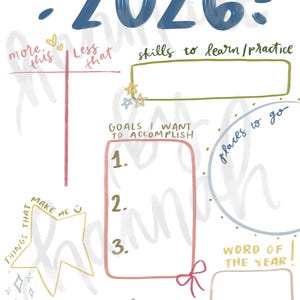 2026:
more this
less that
skills to learn/practice
GOALS I WANT
TO ACCOMPLISH
1.
2.
3.
places to go
THINGS THAT MAKE ME
WORD OF
THE YEAR!
hannah